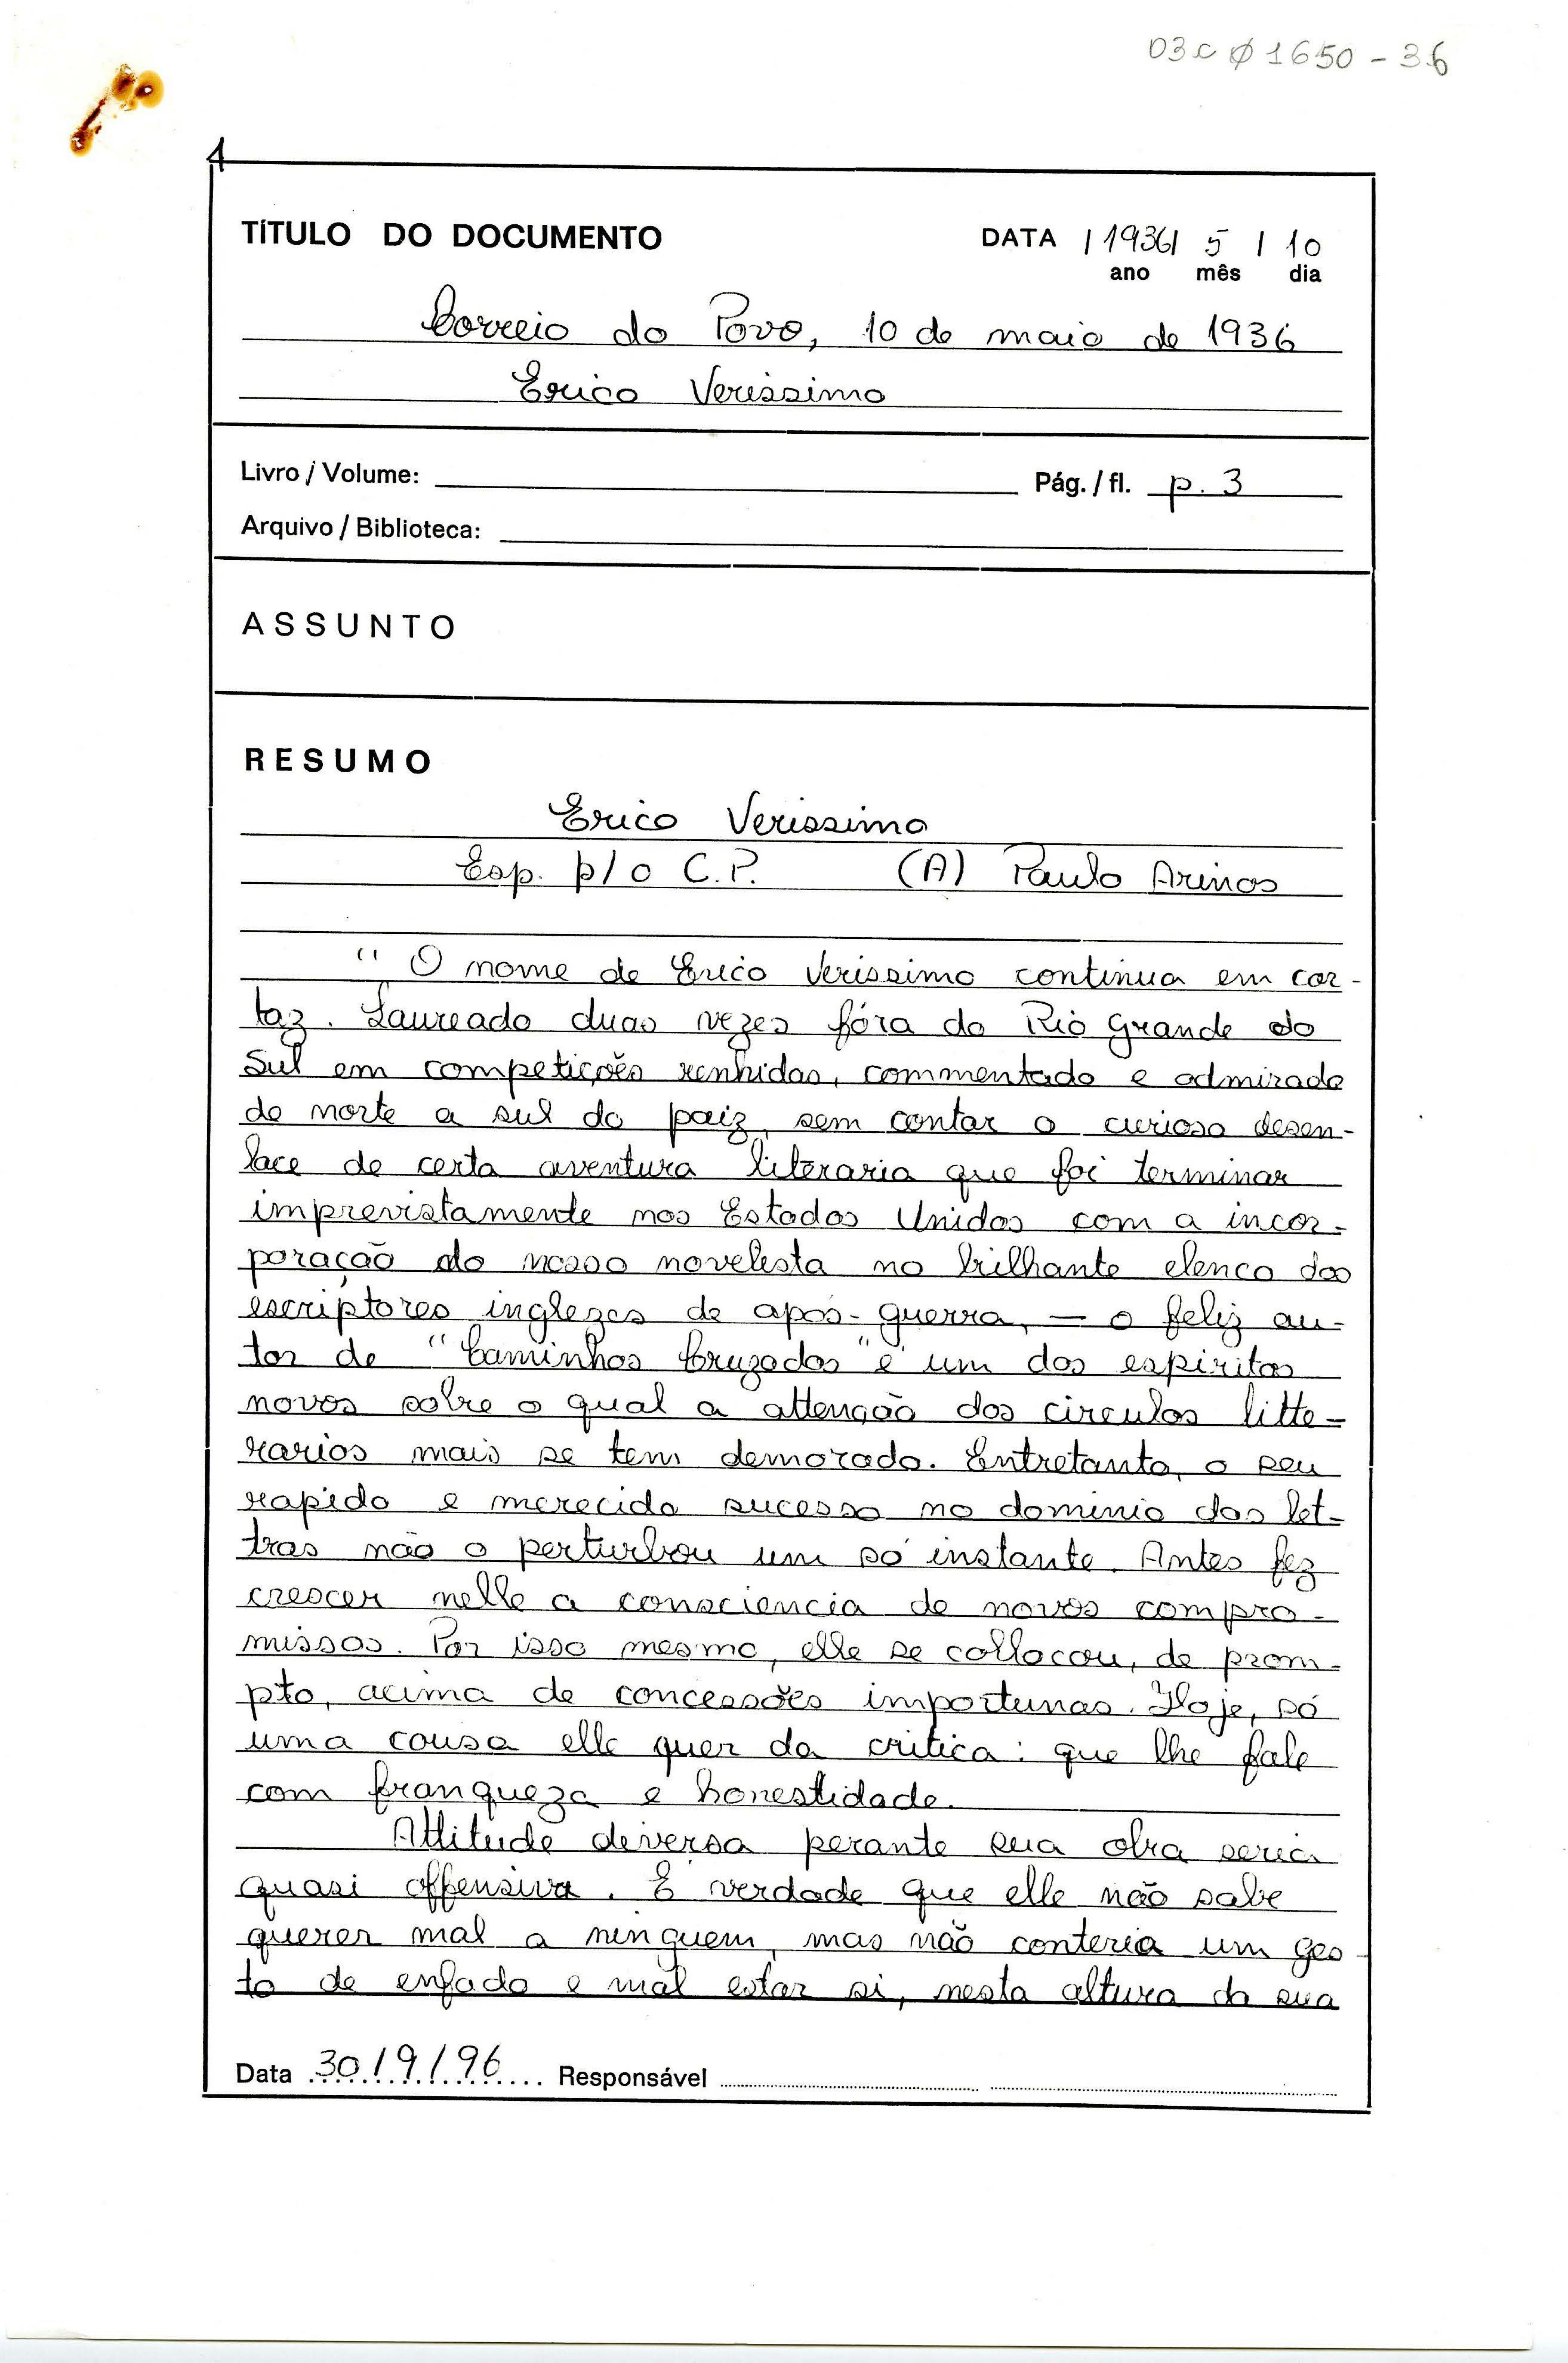 03c Ø 1650 - 36
1
TÍTULO DO DOCUMENTO DATA / 1936 / 5 / 10
ano mês dia
Correio do Povo, 10 de maio de 1936
Erico Verissimo
Livro / Volume: Pág. / fl. p. 3
Arquivo / Biblioteca:
ASSUNTO
RESUMO
Erico Verissimo
Esp. p/ o C.P. (A) Paulo Arinos
" O nome de Erico Verissimo continua em car-
taz. Laureado duas vezes fóra do Rio Grande do
Sul em competições renhidas, commentado e admirado
de norte a sul do paiz, sem contar o curioso desen-
lace de certa aventura literaria que foi terminar
imprevistamente nos Estados Unidos com a incor-
poração do nosso novelista no brilhante elenco dos
escriptores inglezes de após-guerra, — o feliz au-
tor de "Caminhos Cruzados" é um dos espiritos
novos sobre o qual a attenção dos circulos litte-
rarios mais se tem demorado. Entretanto, o seu
rapido e merecido sucesso no dominio das let-
tras não o perturbou um só instante. Antes fez
crescer nelle a consciencia de novos compro-
missos. Por isso mesmo, elle se collocou, de prom-
pto, acima de concessões importunas. Hoje, só
uma cousa elle quer da critica: que lhe fale
com franqueza e honestidade.
Attitude diversa perante sua obra seria
quasi offensiva. E verdade que elle não sabe
querer mal a ninguem, mas não conteria um ges
to de enfado e mal estar si, nesta altura da sua
Data 30/9/96 Responsável